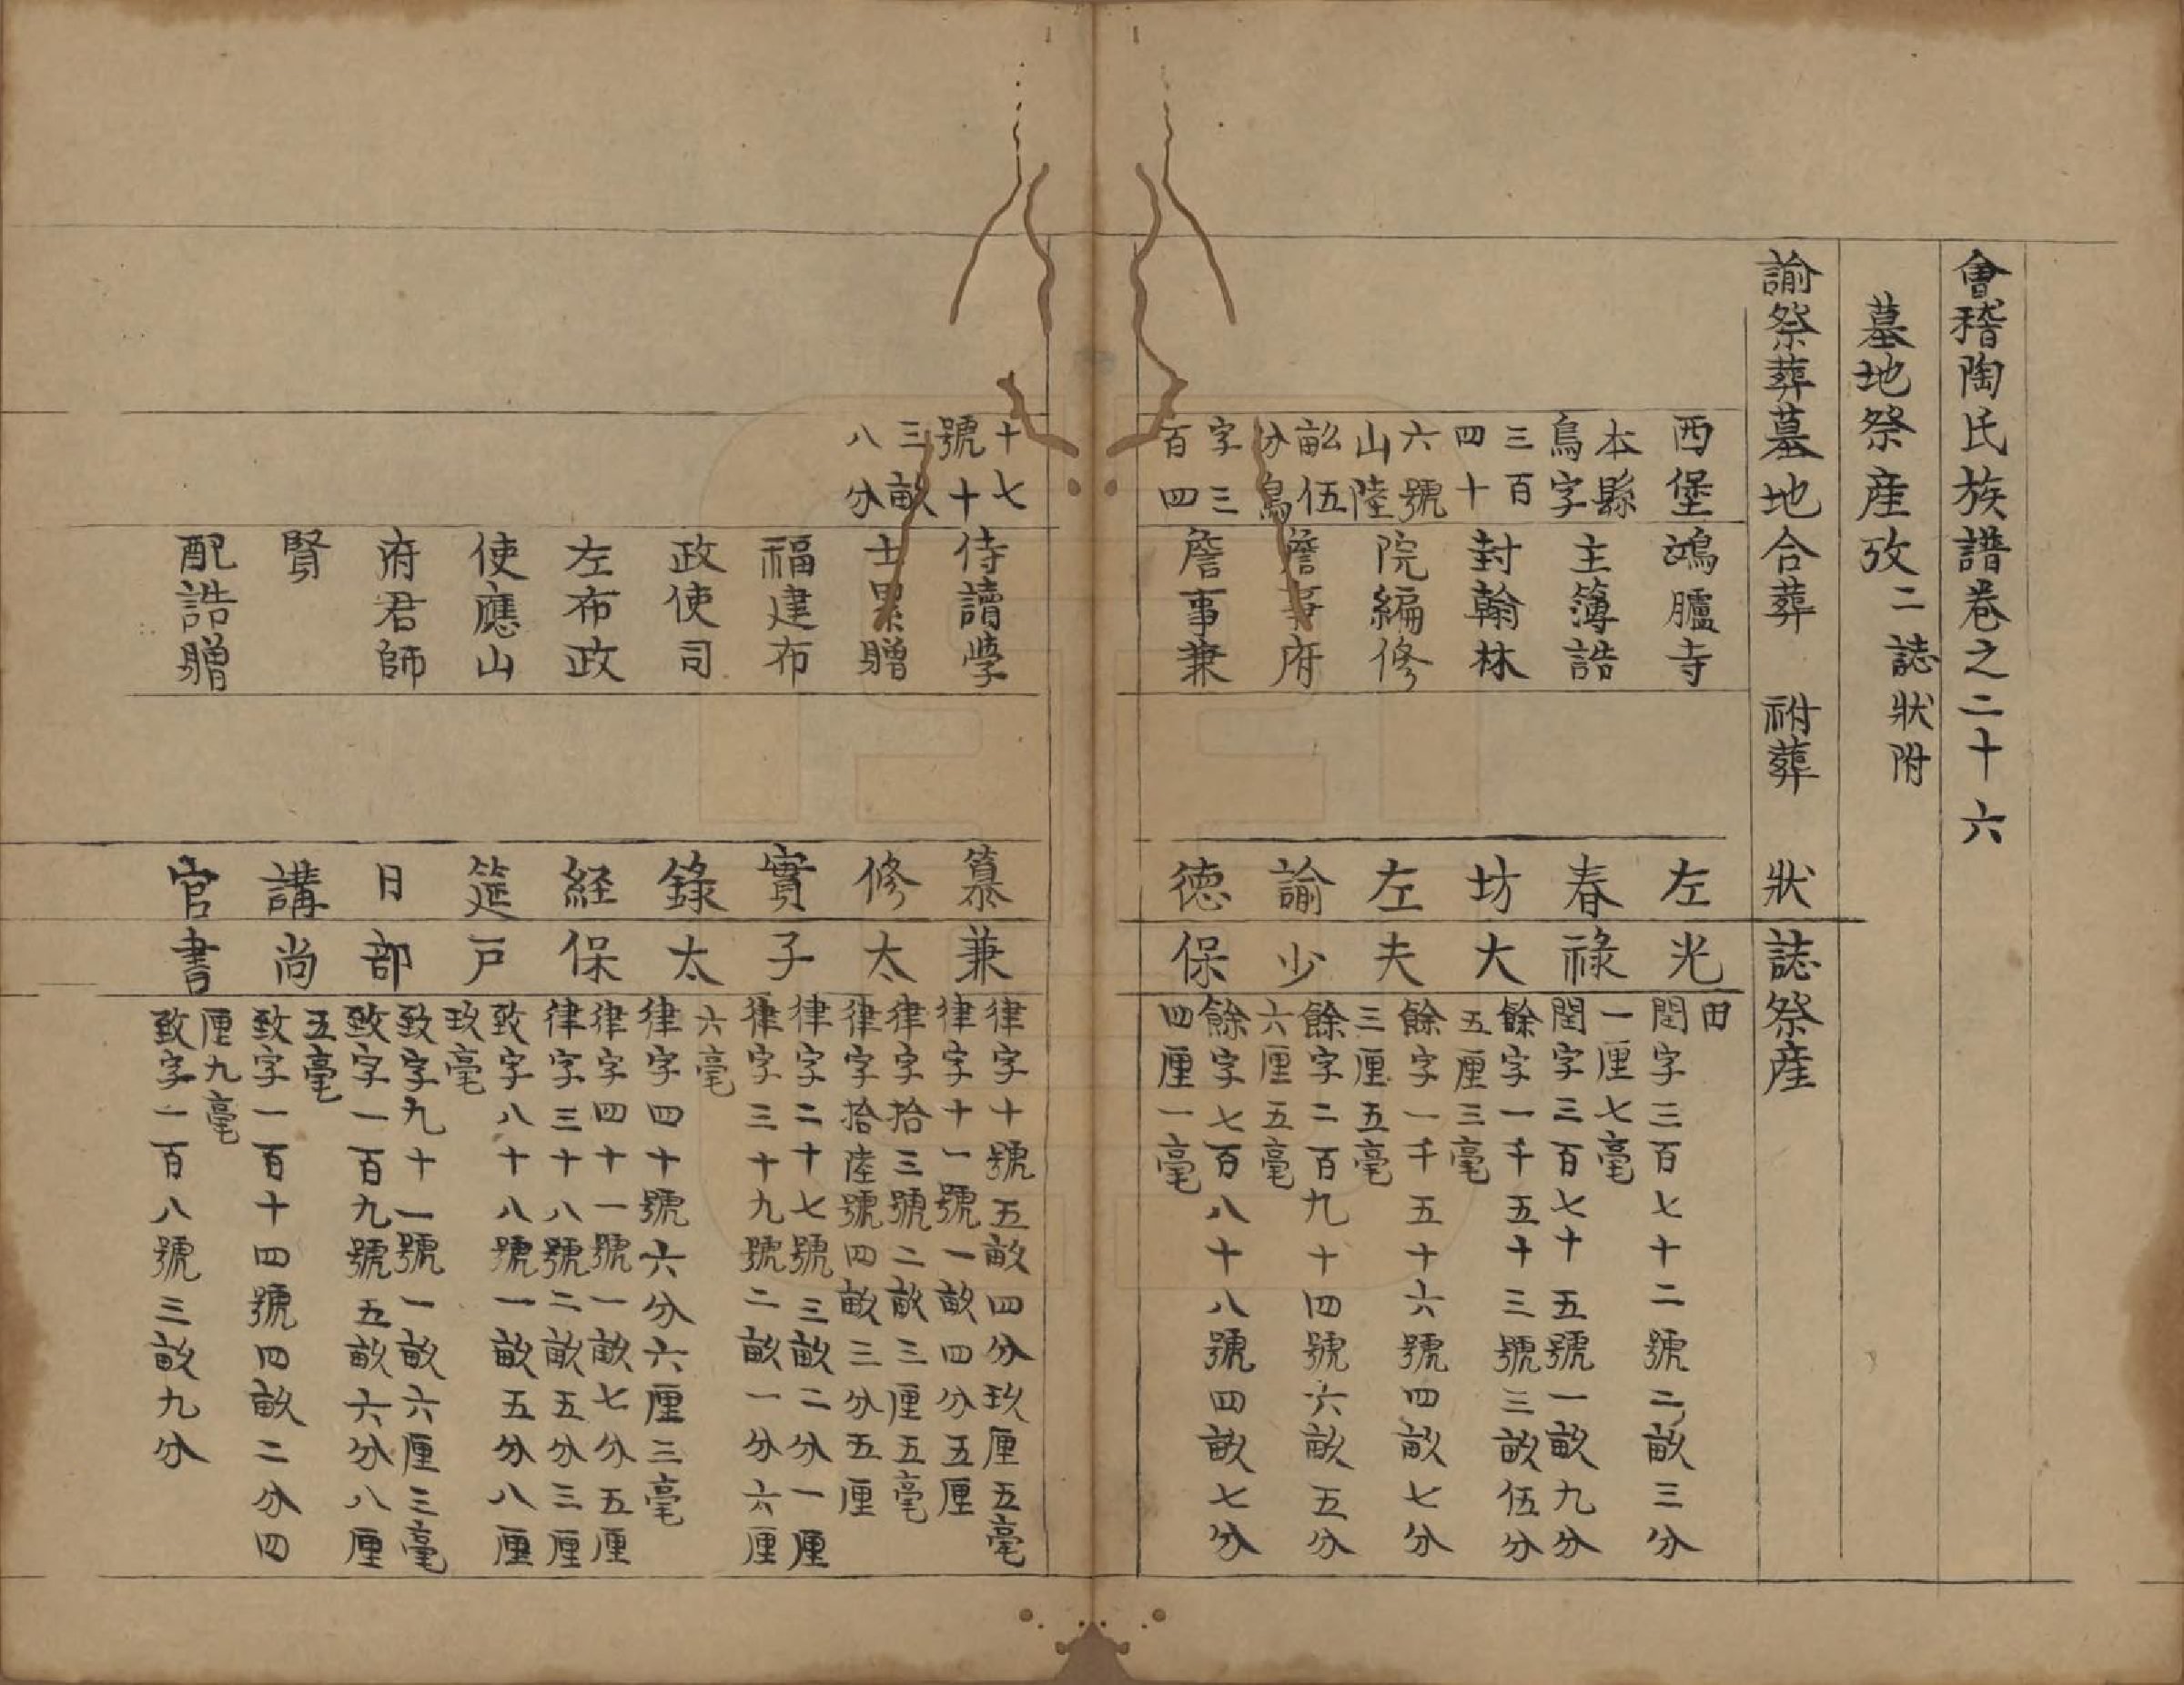 會稽陶氏族譜卷之二十六
墓地祭產攷二誌狀附
諭祭葬墓地合葬 祔葬 狀誌祭產
西堡
本縣
鳥字
三百
四十
六號
山陸
畝伍
分鳥
字三
百四
鴻臚寺
主簿誥
封翰林
院編修
詹事府
詹事兼
左
春
坊
左
諭
德
光
祿
大
夫
少
保
田
閏字三百七十二號二畝三分
一厘七毫
閏字三百七十五號一畝九分
餘字一千五十三號三畝伍分
五厘三毫
餘字一千五十六號四畝七分
三厘五毫
餘字二百九十四號六畝五分
六厘五毫
餘字七百八十八號四畝七分
四厘一毫
十七
號十
三畝
八分
侍讀學
士累贈
福建布
政使司
左布政
使應山
府君師
賢
配誥贈
纂
修
實
錄
経
筵
日
講
官
兼
太
子
太
保
戶
部
尚
書
律字十號五畝四分玖厘五毫
律字十一號一畝四分五厘
律字拾三號二畝三厘五毫
律字拾陸號四畝三分五厘
律字二十七號三畝二分一厘
律字三十九號二畝一分六厘
六毫
律字四十號六分六厘三毫
律字四十一號一畝七分五厘
律字三十八號二畝五分三厘
致字八十八號一畝五分八厘
玖毫
致字九十一號一畝六厘三毫
致字一百九號五畝六分八厘
五毫
致字一百十四號四畝二分四
厘九毫
致字一百八號三畝九分